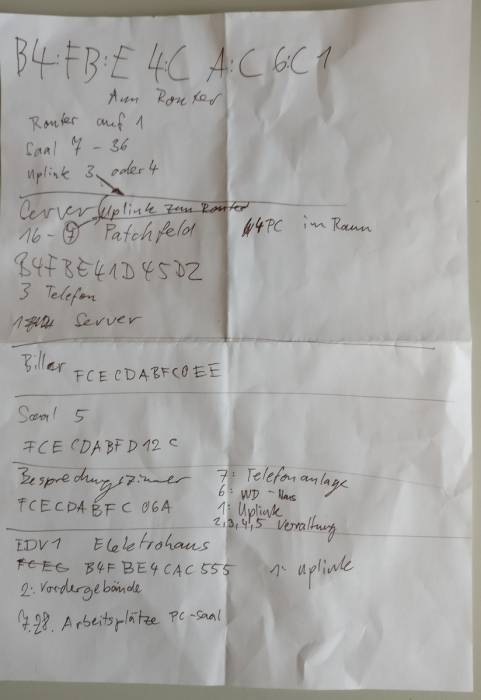 B4:FB:E 4:C A:C 6:C1
Am Router
Router auf 1
Saal 7 - 36
Uplink 3 oder 4
Server Uplink zum Router
16 - 7 Patchfeld 4 PC im Raum
B4FBE41D45DZ
3 Telefon
Server
FCECDABFC0EE
Saal 5
FCECDABFD12C
Besprechungszimmer 7: Telefonanlage
6: WD - Nas
FCECDABFC06A 1: Uplink
2,3,4,5 Verwaltung
EDV1 Elektrohaus
B4FBE4CAC555 1: Uplink
2: Vordergebäude
7.28. Arbeitsplätze PC-Saal